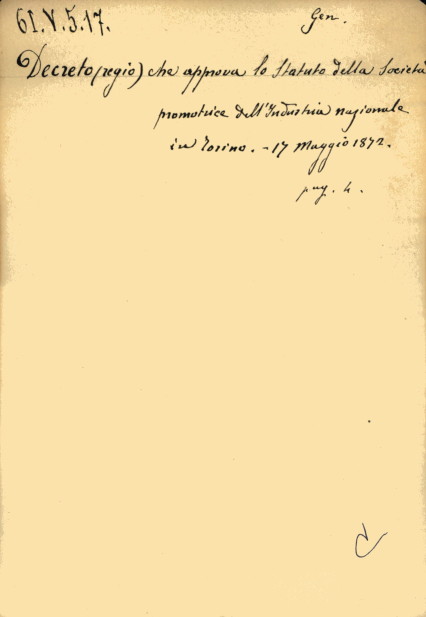 61.V.5.17.
Gen.
Decreto (regio) che approva lo Statuto della Società
promotrice dell'Industria nazionale
in Torino. - 17 Maggio 1872.
pag. 4.